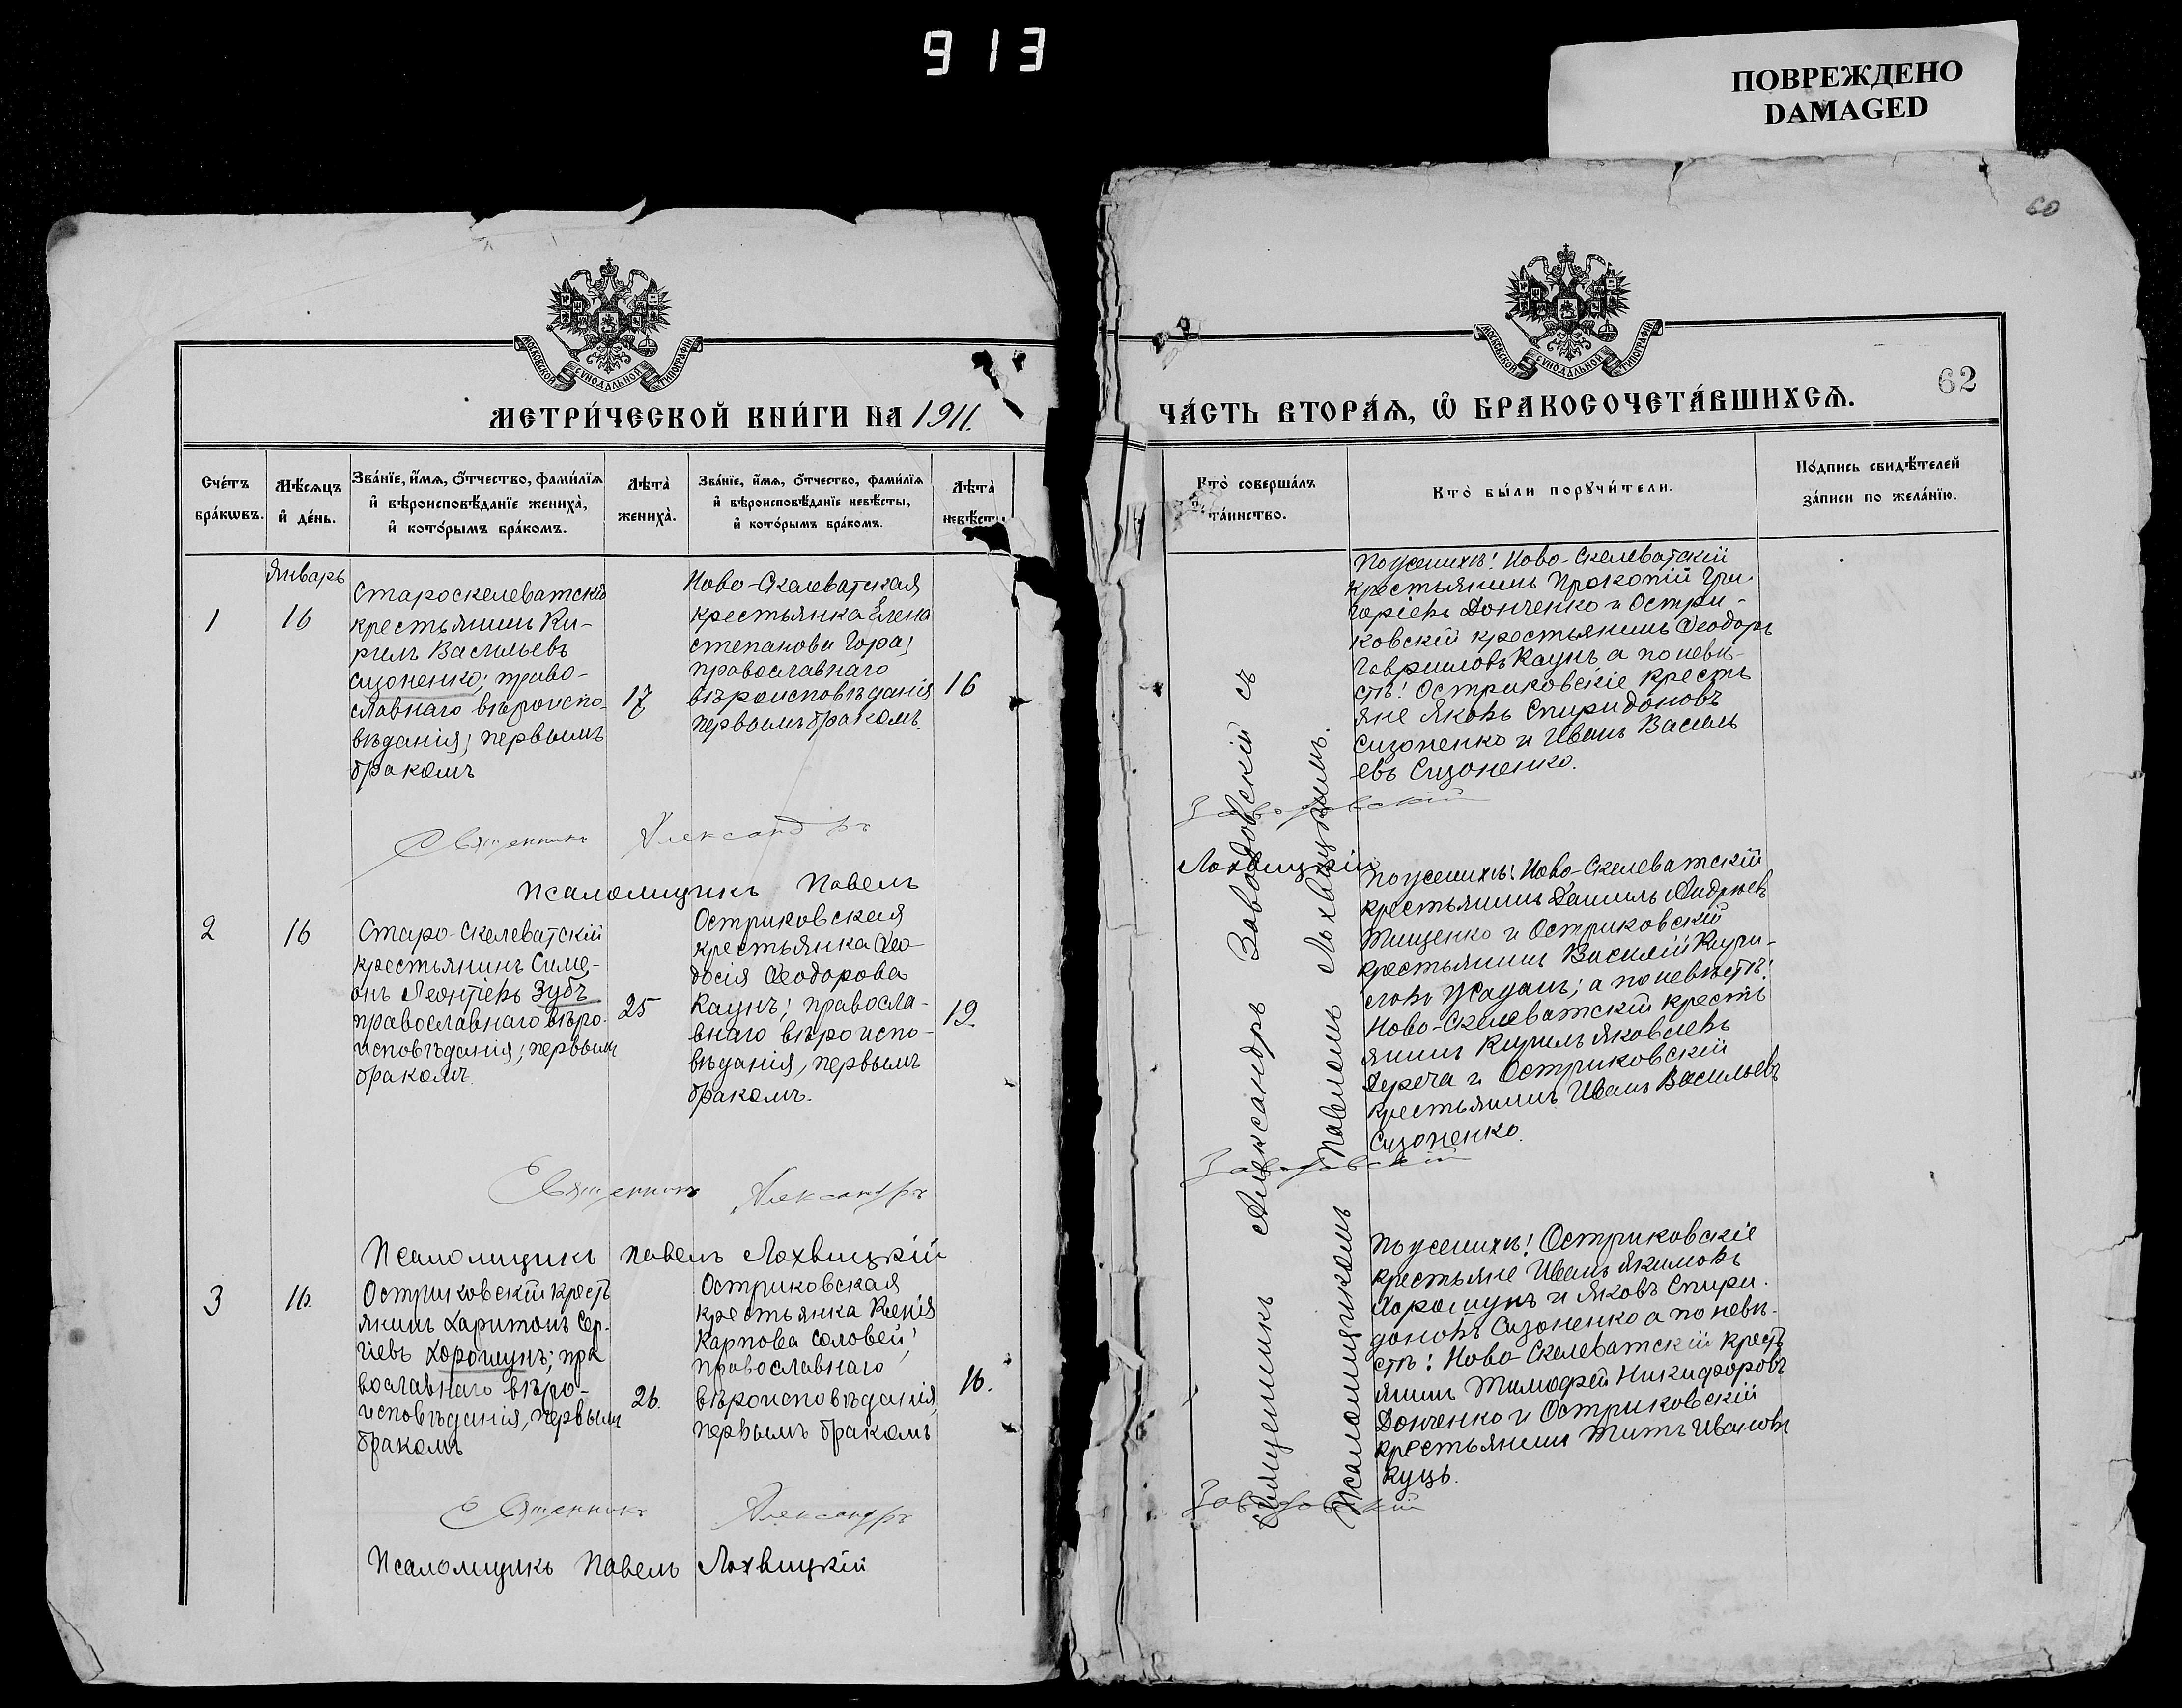 913
ПОВРЕЖДЕНО
DAMAGED
60
МОСКОВСКОЙ СУНОДАЛЬНОЙ ТИПОГРАФІИ
МЕТРИ́ЧЕСКОЙ КНИ́ГИ НА 1911.
Сче́тъ бра́кѡвъ.
Мѣ́сѧцъ и҆ де́нь.
Зва́нїе, и҆́мѧ, ѻ҆́тчество, фами́лїѧ
и҆ вѣроисповѣ́данїе жениха̀,
и҆ кото́рымъ бра́комъ.
Лѣта̀ жениха̀.
Зва́нїе, и҆́мѧ, ѻ҆́тчество, фами́лїѧ
и҆ вѣроисповѣ́данїе невѣ́сты,
и҆ кото́рымъ бра́комъ.
Лѣта̀ невѣ́сты
Январь
1
16
Староскелеватскій
крестьянинъ Ки-
рилъ Васильевъ
Сизоненко; право-
славнаго вѣроиспо-
вѣданія; первымъ
бракомъ
17
Ново-Скелеватская
крестьянка Елена
Степанова Гора;
православнаго
вѣроисповѣданія
первымъ бракомъ.
16
Священникъ Александръ
Псаломщикъ Павелъ
2
16
Старо-Скелеватскій
крестьянинъ Симе-
онъ Леонтіевъ Зубъ
православнаго вѣро-
исповѣданія; первымъ
бракомъ.
25
Остриковская
крестьянка Ѳео-
досія Ѳеодорова
Каунъ; правосла-
внаго вѣроиспо-
вѣданія, первымъ
бракомъ.
19.
Священникъ Александръ
Псаломщикъ Павелъ Лохвицкій
3
16.
Остриковскій кресть
янинъ Харитонъ Сер-
гіевъ Хорошунъ; пра
вославнаго вѣро-
исповѣданія, первымъ
бракомъ
26.
Остриковская
крестьянка Ксенія
Карпова Соловей;
православнаго
вѣроисповѣданія,
первымъ бракомъ
16.
Священникъ Александръ
Псаломщикъ Павелъ Лохвицкій
МОСКОВСКОЙ СУНОДАЛЬНОЙ ТИПОГРАФІИ
ЧА́СТЬ ВТОРА́Ѧ, Ѡ҆ БРАКОСОЧЕТА́ВШИХСѦ.
62
Кто̀ соверша́лъ
та́инство.
Кто̀ бы́ли порꙋчи́тели.
По́дпись свидѣ́телей
за́писи по жела́нїю.
Священникъ Александръ Заводовскій съ
Псаломщикомъ Павломъ Лохвицкимъ.
По женихѣ: Ново-Скелеватскій
крестьянинъ Прокопій Гри-
горіевъ Донченко и Остри-
ковскій крестьянинъ Ѳеодоръ
Гавриловъ Каунъ, а по невѣ-
стѣ: Остриковскіе кресть
яне Яковъ Спиридоновъ
Сизоненко и Иванъ Василь
евъ Сизоненко.
Заводовскій
Лохвицкій
По женихѣ: Ново-Скелеватскій
крестьянинъ Даніилъ Андреевъ
Тищенко и Остриковскій
крестьянинъ Василій Кири-
ловъ Жаданъ; а по невѣстѣ:
Ново-Скелеватскій кресть
янинъ Кирилъ Яковлевъ
Дереча и Остриковскій
крестьянинъ Иванъ Васильевъ
Сизоненко.
Заводовскій
По женихѣ: Остриковскіе
крестьяне Иванъ Якимовъ
Хорошунъ и Яковъ Спири-
доновъ Сизоненко а по невѣ-
стѣ: Ново-Скелеватскій кресть
янинъ Тимофей Никифоровъ
Донченко и Остриковскій
крестьянинъ Титъ Ивановъ
Куць.
Заводовскій